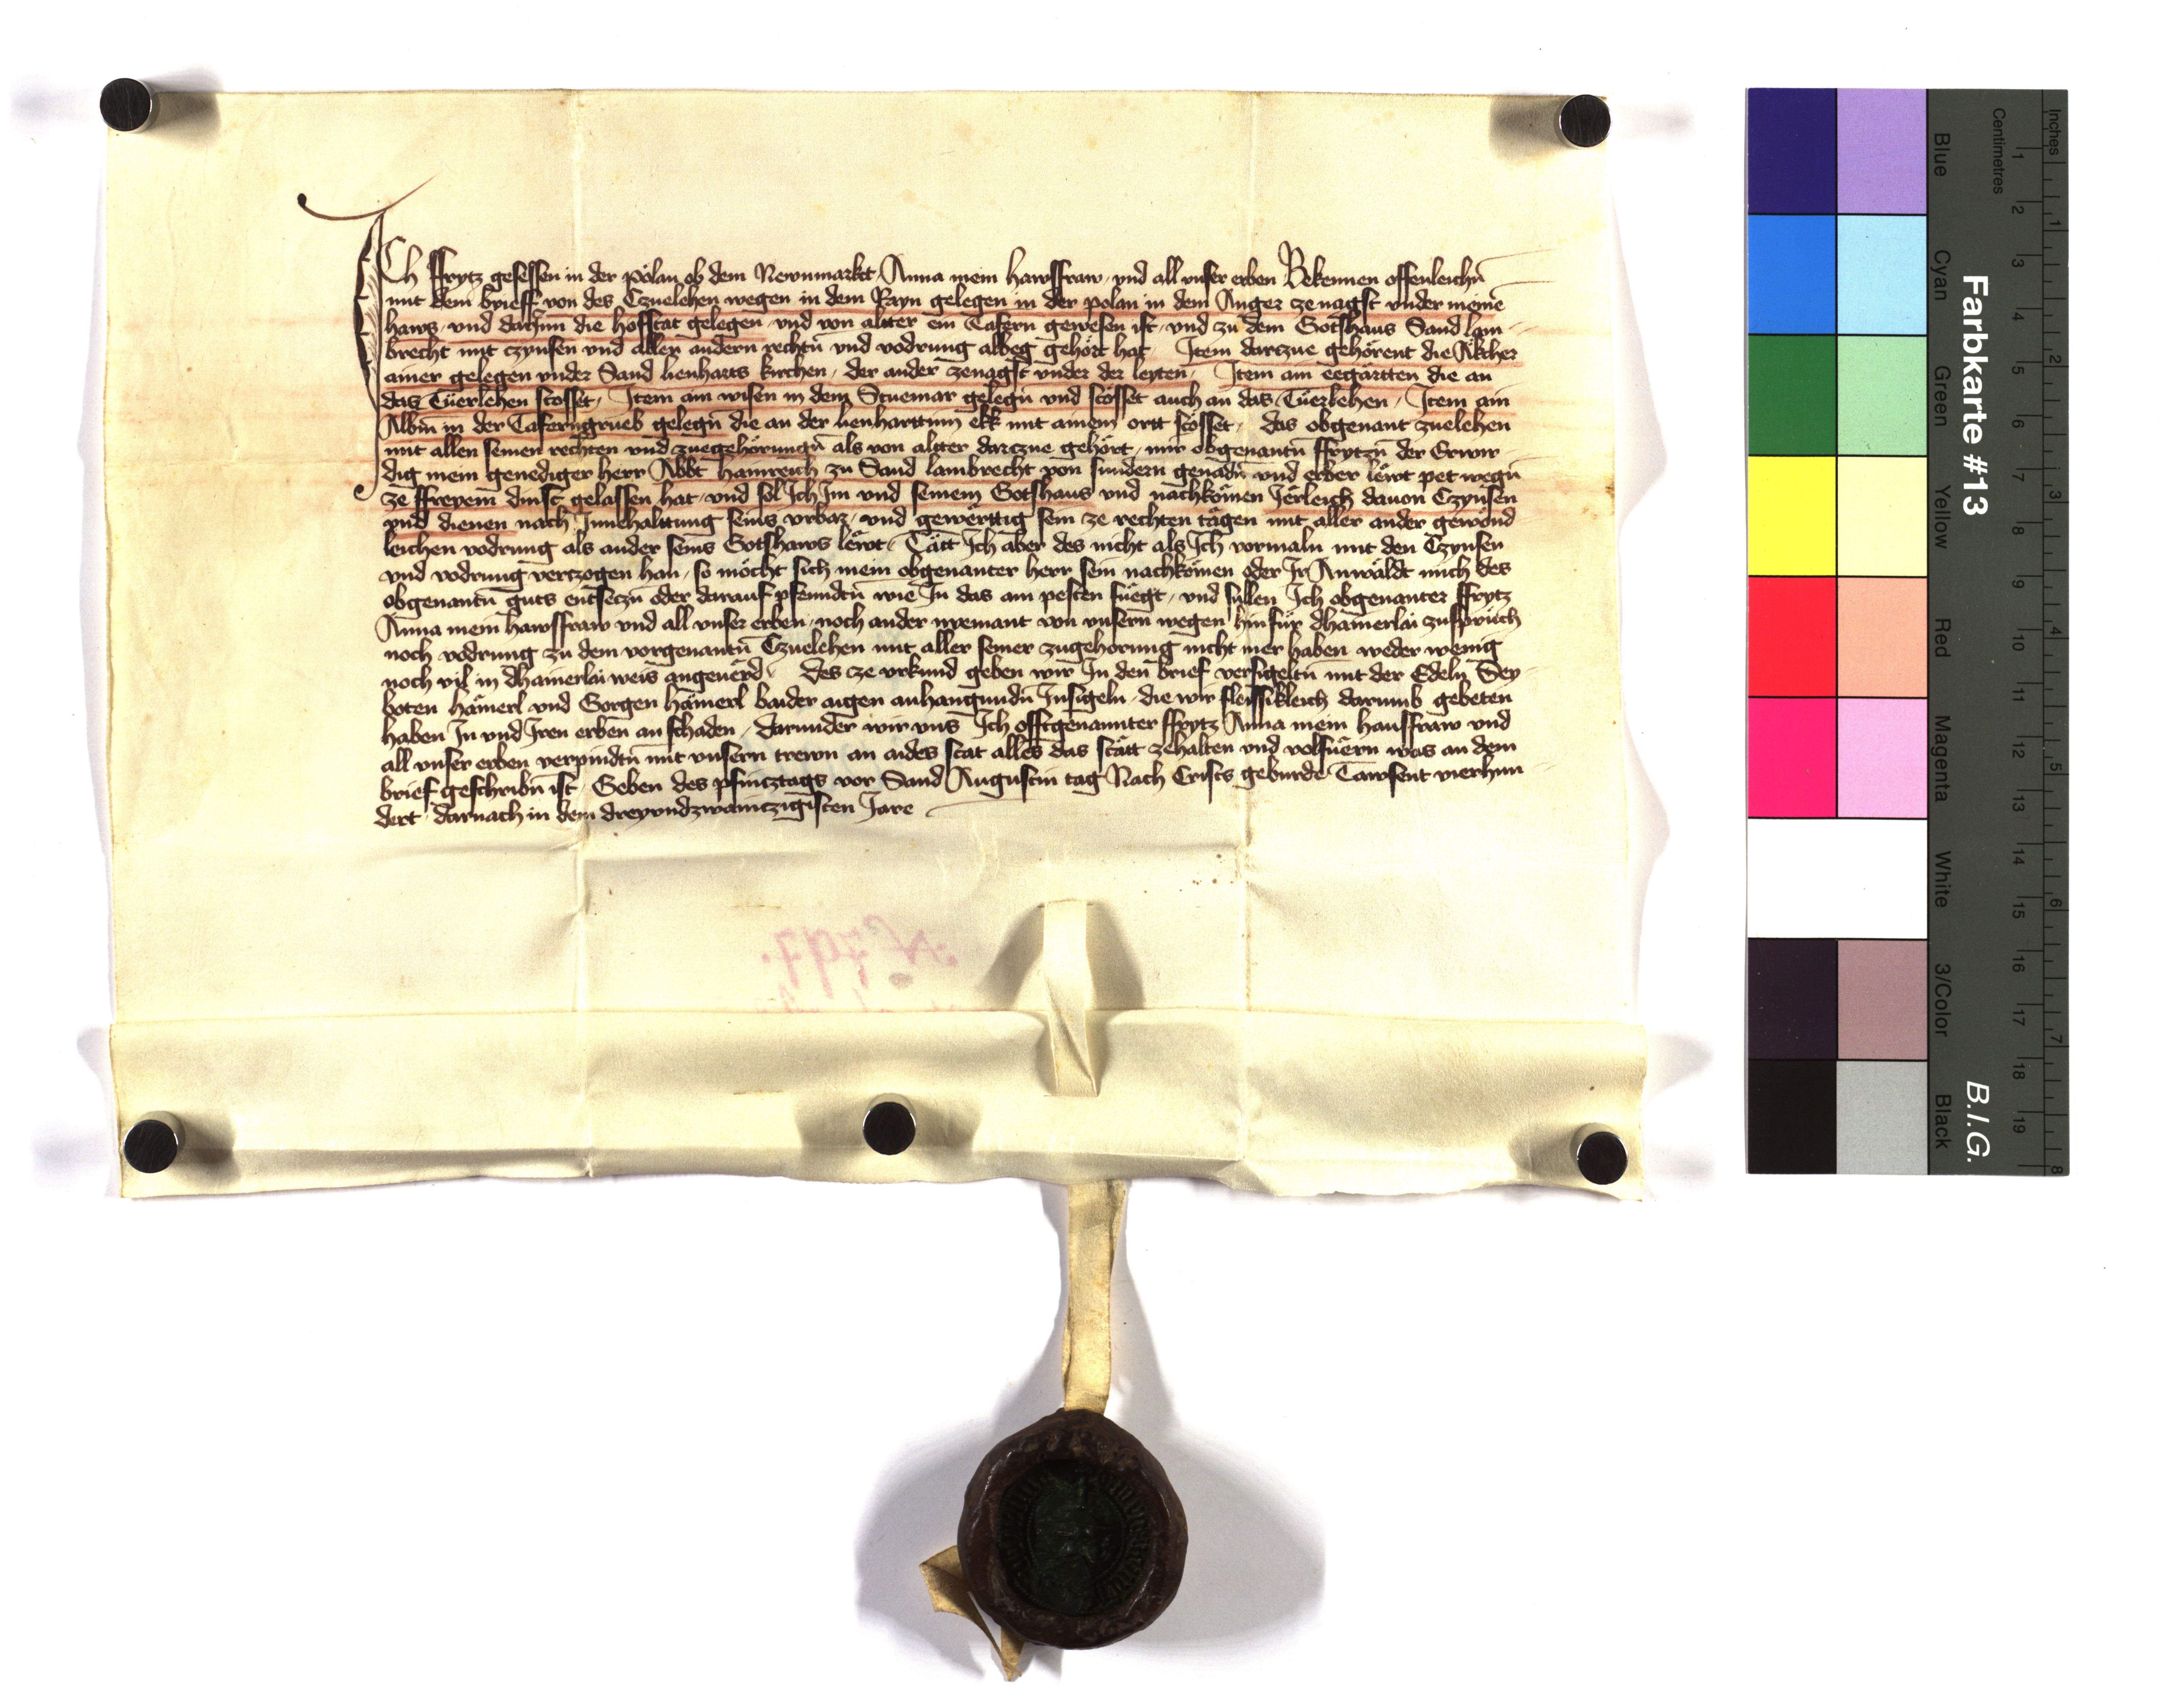 ICh ffrytz gesessen in der pölan ob dem Newnmarkt Anna mein hawsfraw vnd all vnser erben Bekennen offenleichñ
mit dem brieff von des Czuelehen wegen in dem Rayn gelegen in der polan in dem Anger zenagst vnder meinē
haws vnd darinn die hofstat gelegen vnd von allter ein Tafern gewesen ist vnd zu dem Gotshaus Sand lam-
brecht mit czynsen vnd allen andern rechtñ vnd vodrung albeg gehört hat Item darczue gehörent die Äkcher
ainer gelegen vnder Sand lienharts kirchen der ander zenagst vnder der leyten Item ain eegärtten die an
das Tüerlehen stosset Item ain wisen in dem Stuemar gelegñ vnd stösset auch an das Tüerlehen Item ain
Albm in der Taferngrueb gelegñ die an der lienharttinn ekk mit ainem ortt stösset das obgenant zuelehen
mit allen seinen rechten vnd zuegehörungñ als von allter darczue gehört mir obgenantñ ffrytzñ der Erwir
dig mein genediger herr Abbt hainreich zu Sand lambrecht von sundern genadñ vnd erber lewt pet wegñ
ze ffreyem dinst gelassen hat vnd sol Ich Im vnd seinem Gotshaus vnd nachkömen Jerleich dauon Czynsen
vnd dienen nach Innehalttung seins vrbar vnd gewerttig sein ze rechten tägen mit aller ander gewönd
leichen vodrung als ander seins Gotshaws lëwt Tätt Ich aber des nicht als Ich vormaln mit den Czynsen
vnd vodrung verczogen han so möcht sich mein obgenanter herr sein nachkömen oder Ir Anwäldt mich des
obgenantñ guts entseczñ oder darauf pfenndtñ wie In das am pesten füegt vnd süllen Ich obgenanter ffrytz
Anna mein hawsfraw vnd all vnser erben noch ander nyemant von vnsern wegen hinfür dhainerlai zusprüch
noch vodrung zu dem vorgenantñ Czuelehen mit aller seiner zugehorung nicht mer haben weder wenig
noch vil in dhainerlai weis angeuërd Des ze vrkund geben wir In den brief versigeltñ mit der Edeln Sey-
boten hämerl vnd Gorgen hämerl baider aigen anhangundñ Insigeln die wir fleissikleich darumb gebeten
haben In vnd Iren erben an schaden darunder wir vns Ich offtgenannter ffrytz Anna mein hausfraw vnd
all vnser erben verpindtñ mit vnsern trewn an aides stat alles das stätt zehalten vnd volfuern was an dem
brief geschribñ ist Geben des pfincztags vor Sand Augustin tag Nach Crists geburde Tawsent vierhun
dert darnach in dem dreyvndzwainczigisten Jare
N 797.
Farbkarte #13
B.I.G.
Inches
Centimetres
1 2 3 4 5 6 7 8 9 10 11 12 13 14 15 16 17 18 19
1 2 3 4 5 6 7 8
Blue
Cyan
Green
Yellow
Red
Magenta
White
3/Color
Black